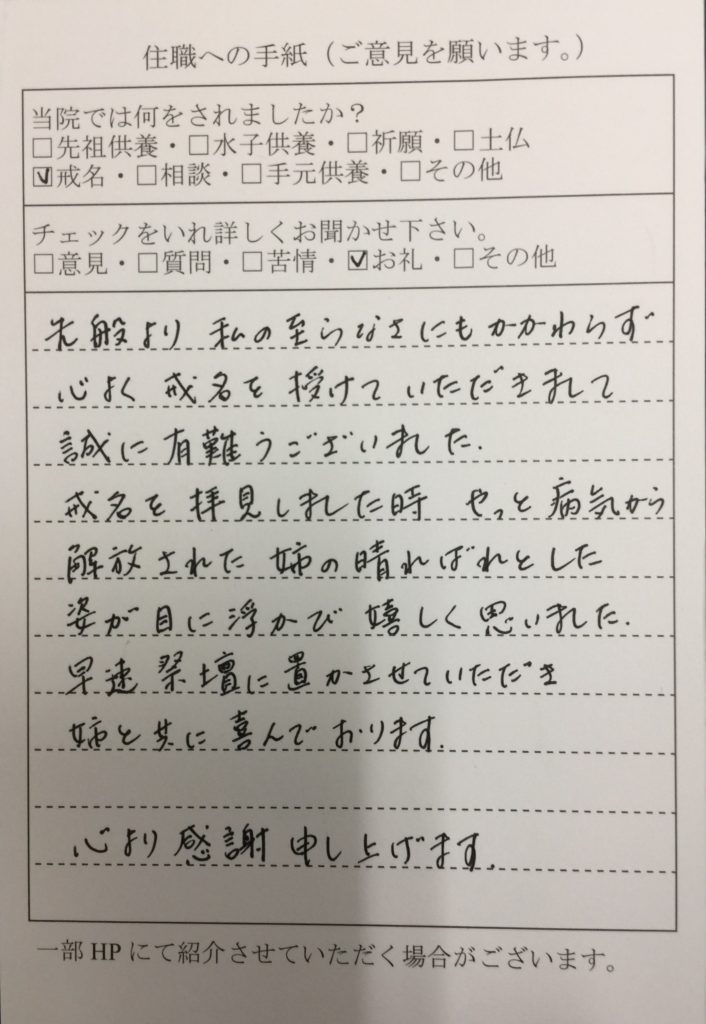 住職への手紙（ご意見を願います。）
当院では何をされましたか？
□先祖供養・□水子供養・□祈願・□土仏
☑戒名・□相談・□手元供養・□その他
チェックをいれ詳しくお聞かせ下さい。
□意見・□質問・□苦情・☑お礼・□その他
先般より 私の至らなさにもかかわらず
心よく 戒名を 授けて いただきまして
誠に 有難うございました.
戒名を 拝見しました時 やっと 病気から
解放された 姉の晴ればれとした
姿が 目に浮かび 嬉しく 思いました.
早速 祭壇に置かさせていただき
姉と共に 喜んでおります.
心より 感謝 申し上げます.
一部 HP にて紹介させていただく場合がございます。